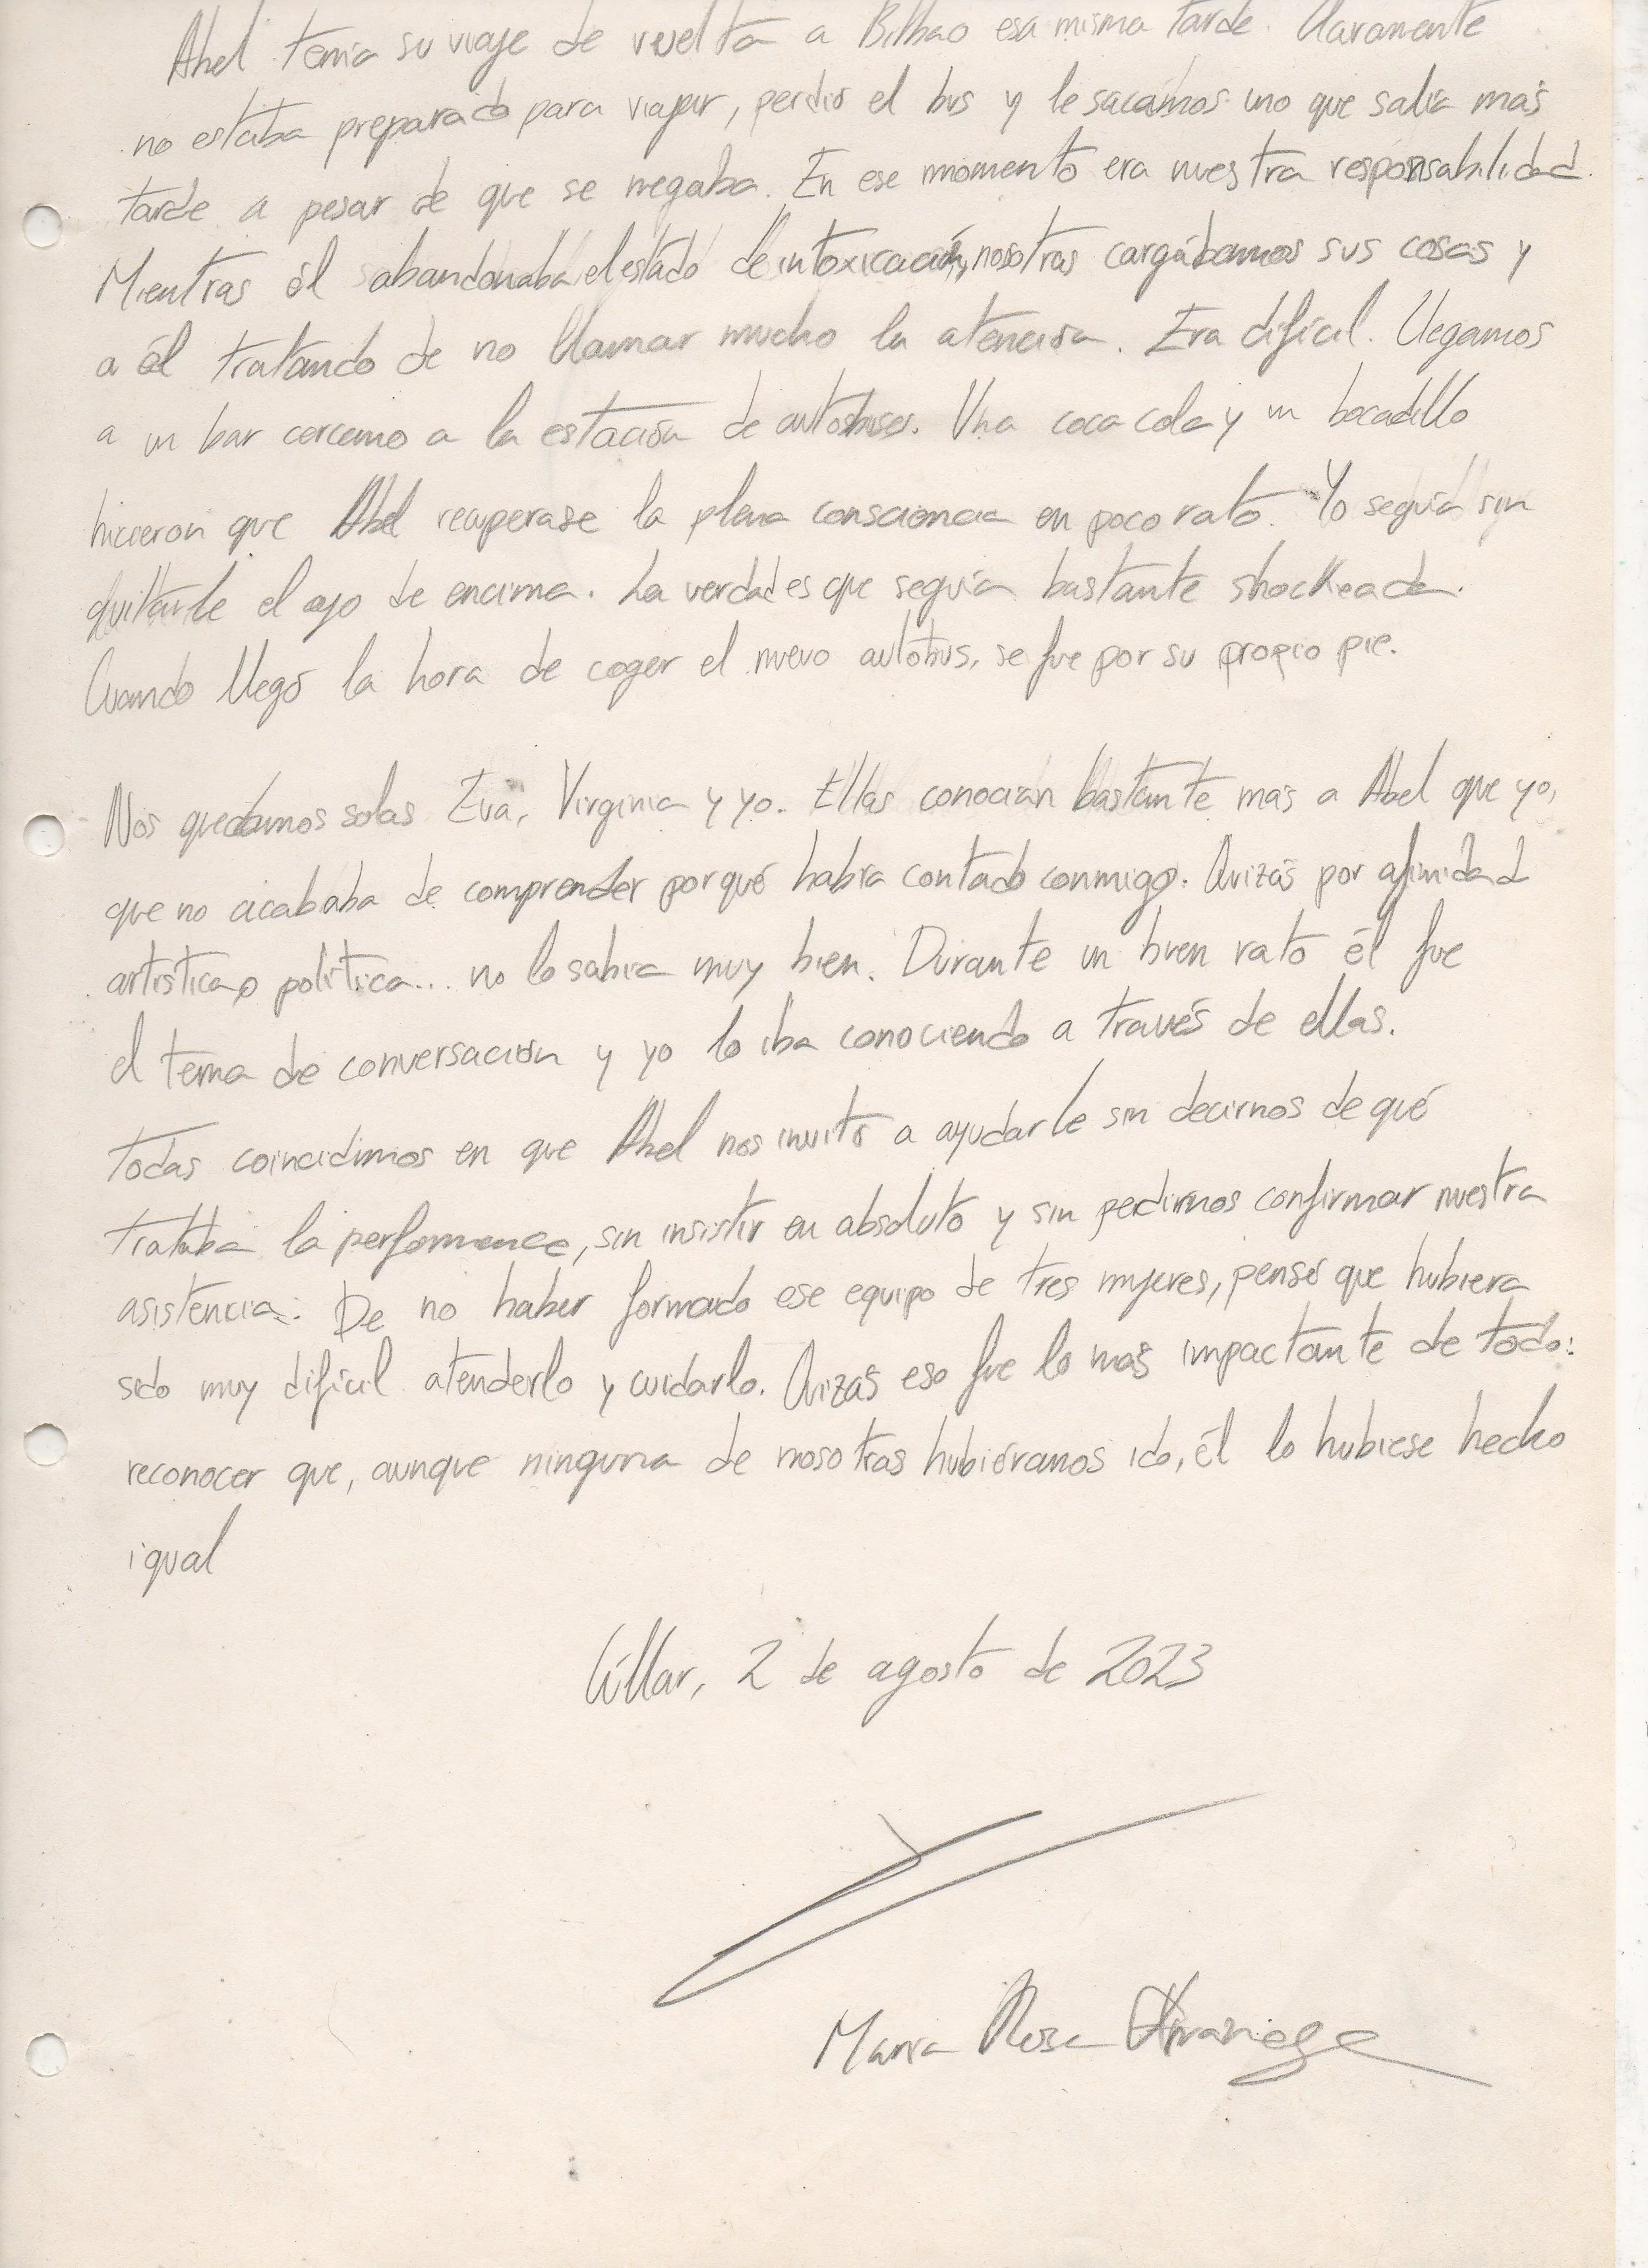 Abel tenía su viaje de vuelta a Bilbao esa misma tarde. Claramente
no estaba preparado para viajar, perdió el bus y le sacamos uno que salía más
tarde a pesar de que se negaba. En ese momento era nuestra responsabilidad.
Mientras él abandonaba el estado de intoxicación, nosotras cargábamos sus cosas y
a él tratando de no llamar mucho la atención. Era difícil. Llegamos
a un bar cercano a la estación de autobuses. Una coca cola y un bocadillo
hicieron que Abel recuperase la plena consciencia en poco rato. Yo seguía sin
quitarle el ojo de encima. La verdad es que seguía bastante shockeada.
Cuando llegó la hora de coger el nuevo autobús, se fue por su propio pie.
Nos quedamos solas Eva, Virginia y yo. Ellas conocían bastante más a Abel que yo,
que no acababa de comprender por qué había contado conmigo. Quizás por afinidad
artística o política... no lo sabía muy bien. Durante un buen rato él fue
el tema de conversación y yo lo iba conociendo a través de ellas.
Todas coincidimos en que Abel nos invitó a ayudarle sin decirnos de qué
trataba la performance, sin insistir en absoluto y sin pedirnos confirmar nuestra
asistencia. De no haber formado ese equipo de tres mujeres, pensé que hubiera
sido muy difícil atenderlo y cuidarlo. Quizás eso fue lo más impactante de todo:
reconocer que, aunque ninguna de nosotras hubiéramos ido, él lo hubiese hecho
igual
Cúllar, 2 de agosto de 2023
María Rosa